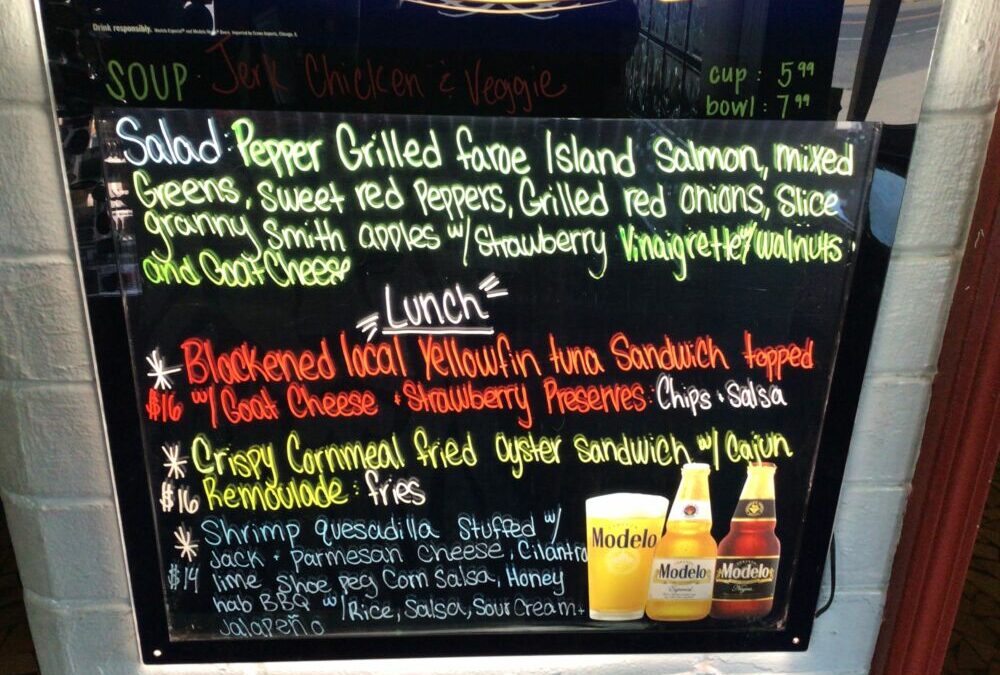 Drink responsibly.
SOUP: Jerk Chicken & Veggie
cup : 5.99
bowl : 7.99
Salad: Pepper Grilled faroe Island Salmon, mixed
Greens, sweet red Peppers, Grilled red onions, Slice
granny Smith apples w/ strawberry Vinaigrette w/ walnuts
and Goat Cheese
Lunch
* Blackened local Yellowfin tuna Sandwich topped
$16 w/ Goat Cheese & Strawberry Preserves: Chips & Salsa
* Crispy Cornmeal fried oyster sandwich w/ Cajun
$16 Remoulade: fries
* Shrimp quesadilla Stuffed w/
Jack + Parmesan cheese, Cilantro
$14 lime Shoe peg Corn Salsa, Honey
hab BBQ w/ Rice, Salsa, Sour Cream +
Jalapeño
Modelo
Modelo
Especial
Modelo
Negra